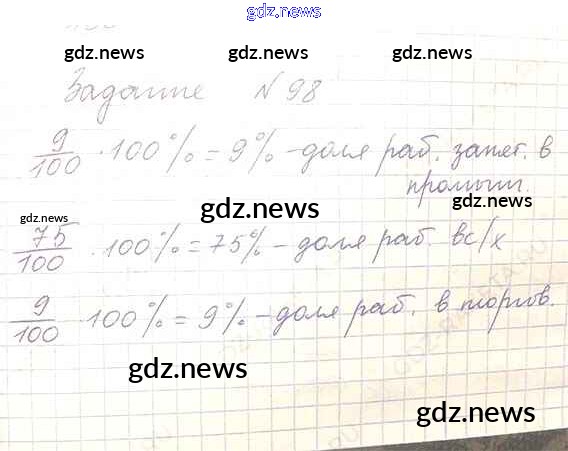 gdz.news
gdz.news gdz.news gdz.news
Задание № 98
9/100 · 100% = 9% - доля раб. занет. в
промыш.
gdz.news gdz.news
gdz.news
75/100 · 100% = 75% - доля раб. в с/х
9/100 · 100% = 9% - доля раб. в торгов.
gdz.news
gdz.news